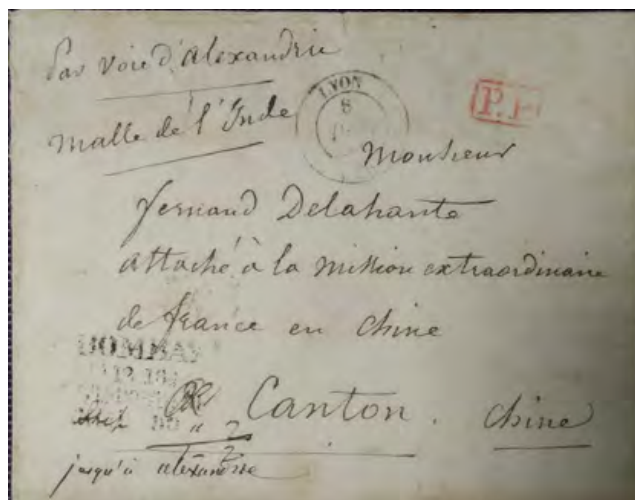 Par voie d'Alexandrie
malle de l'Inde
LYON
8
P.P.
Monsieur
fernand Delahante
attaché à la mission extraordinaire
de france en Chine
BOMBAY
Canton. Chine
2
2
jusqu'à alexandrie